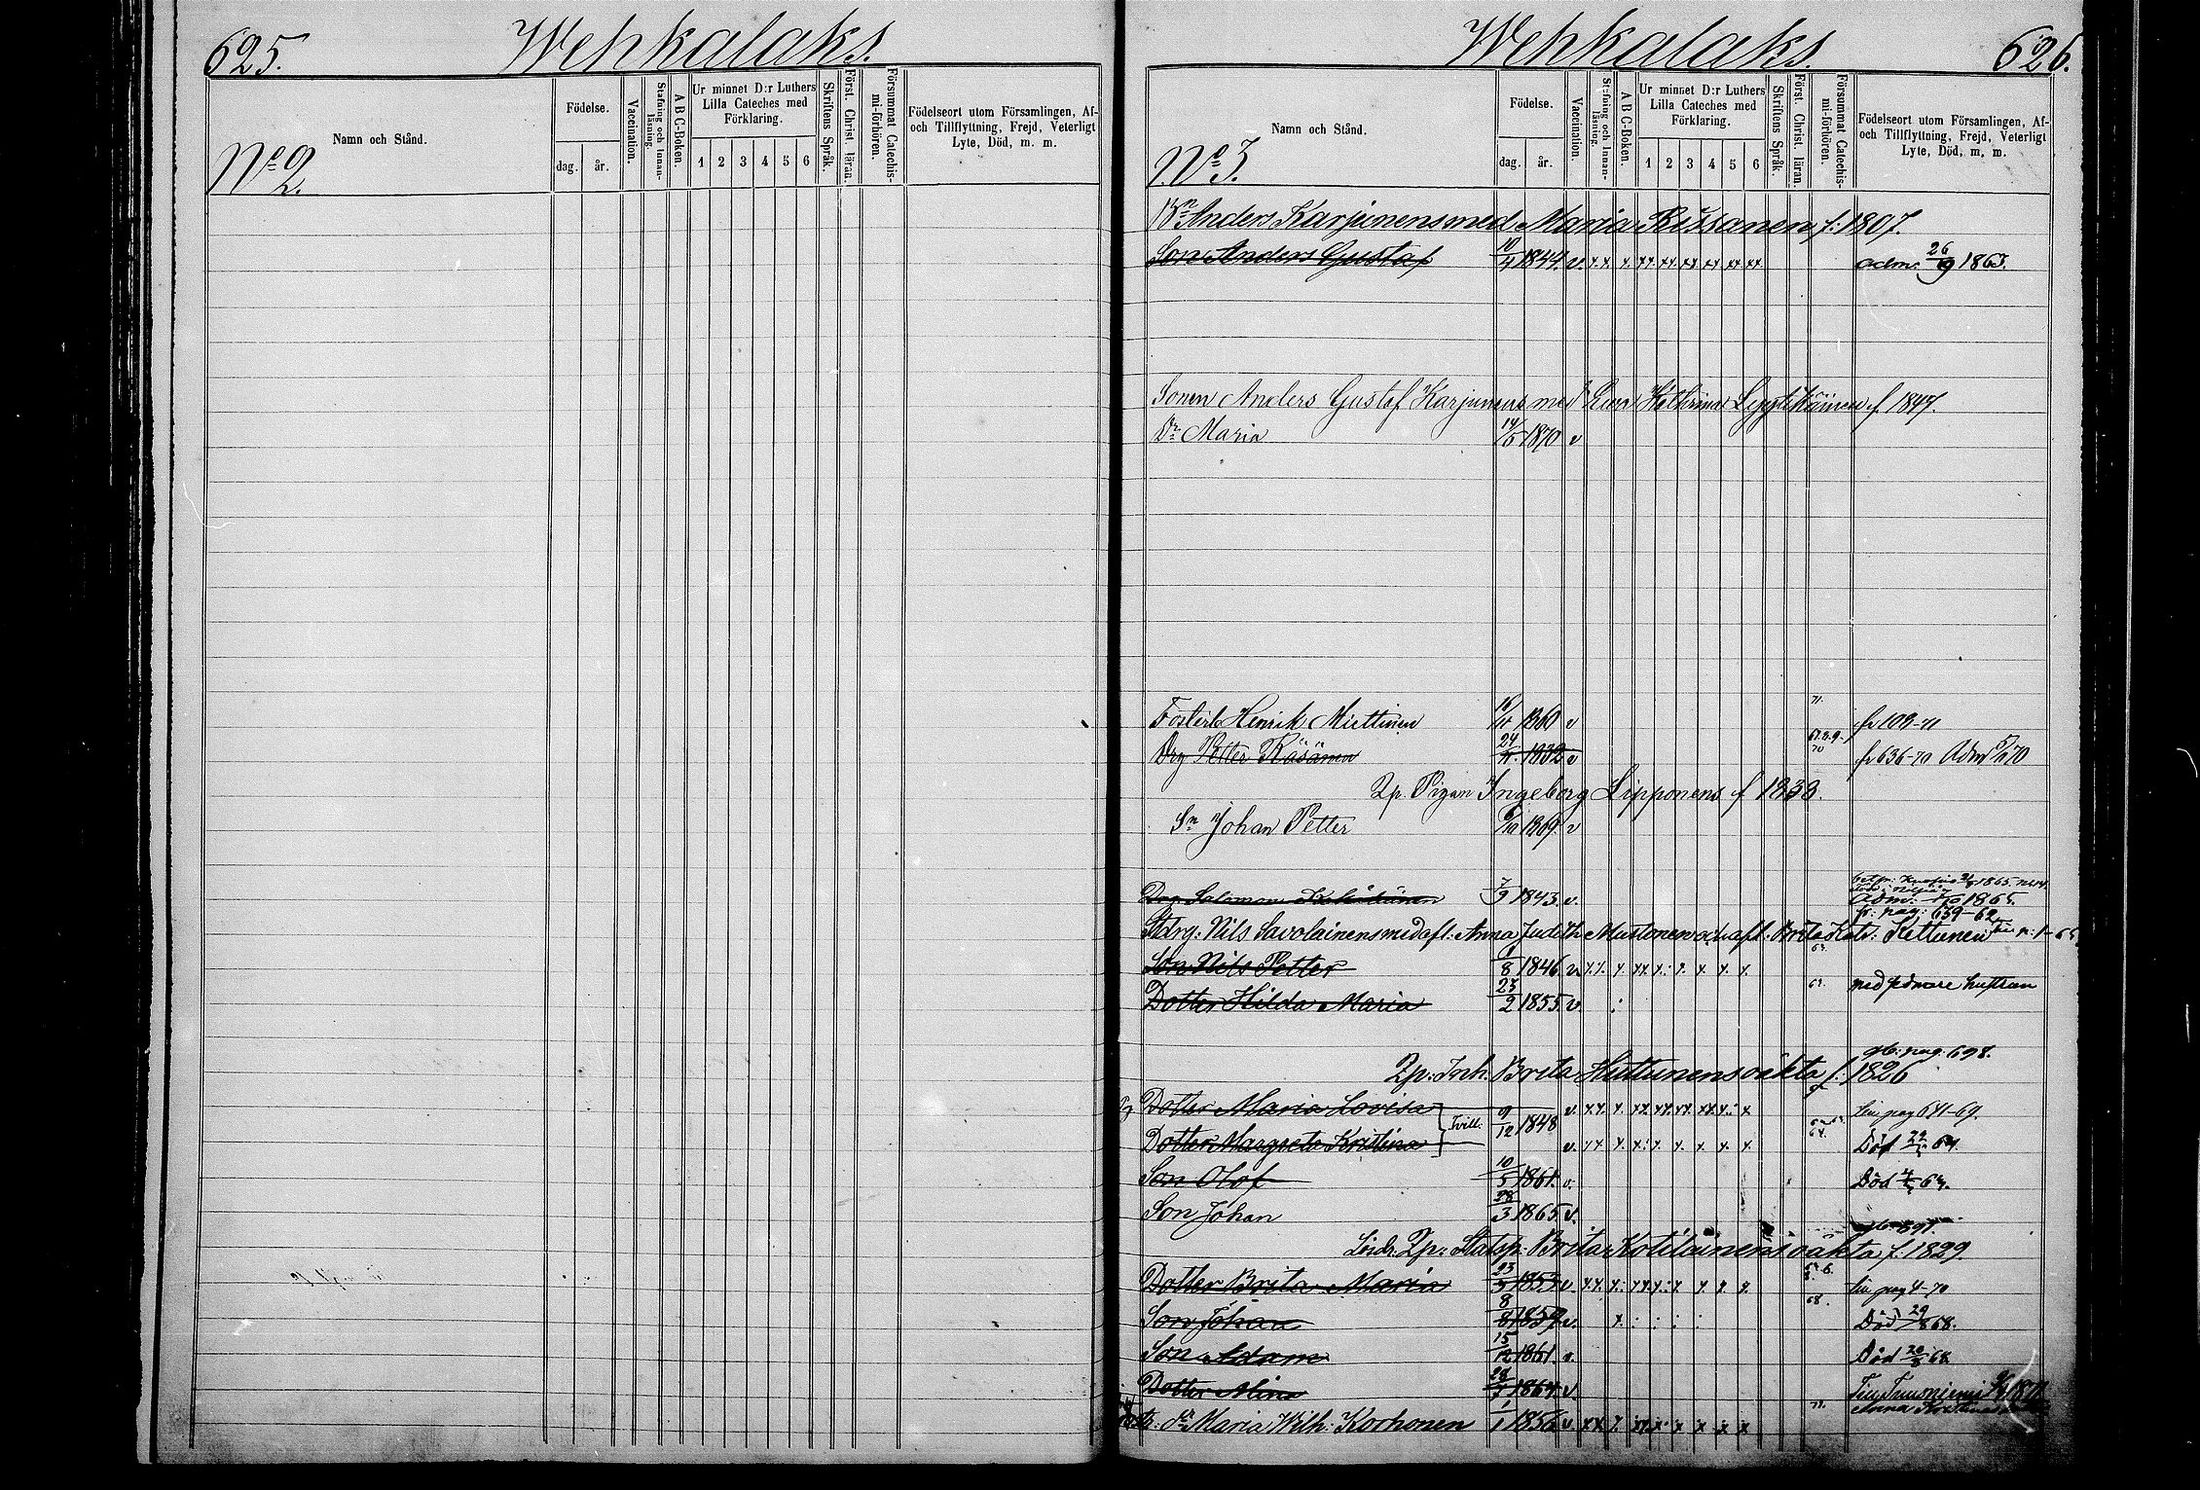 625. Wehkalaks.
Namn och Stånd.
Födelse.
dag. år.
Vaccination.
Stafning och Innan-läsning.
A B C-Boken.
Ur minnet D:r Luthers Lilla Cateches med Förklaring.
1 2 3 4 5 6
Skriftens Språk.
Först. Christ. läran.
Försummat Catechis-mi-förhören.
Födelseort utom Församlingen, Af- och Tillflyttning, Frejd, Veterligt Lyte, Död, m. m.
No 2.
Wehkalaks. 626.
Namn och Stånd.
Födelse.
dag. år.
Vaccination.
Stafning och Innan-läsning.
A B C-Boken.
Ur minnet D:r Luthers Lilla Cateches med Förklaring.
1 2 3 4 5 6
Skriftens Språk.
Först. Christ. läran.
Försummat Catechis-mi-förhören.
Födelseort utom Församlingen, Af- och Tillflyttning, Frejd, Veterligt Lyte, Död, m. m.
No 3.
Anders Karjunens med Maria Rissanen, f: 1807.
Son Anders Gustaf 10/4 1844. v. adm. 26/9 1863.
Sonen Anders Gustaf Karjunens med Kathrina f 1847.
Dr Maria 14/5 1870 v
Henrik Miettinen 1860 v 71. fr 109-71
Drg Petter Räsänen 24 1832 v 70 fr 636-70 Adm 70
Zp. Pigan Ingeborg Lipponens f 1838.
Sn Johan Petter 1869 v
Drg. Salomon 7/9 1843. v. Adm. 1865.
fr: pag: 639-62
Stdrg. Nils Savolainens med afl: Anna Judith Mustonen och afl. Brita Kettunen
Son Nils Petter 1/8 1846. v.
Dotter Hilda Maria 23/2 1855. v. med hustrun
pag: 698.
Zp: Inh. Brita Huttunens oäkta f. 1826
Dotter Maria Lovisa Tvill. 9/12 1848 v. pag 641-69.
Dotter Margreta Kristina v. Död 64.
Son Olof 10/5 1861. v. Död 64.
Son Johan 28/3 1865 v.
Zp: Brita Kotilainens oäkta f. 1829
Dotter Brita Maria 23 1853 v. pag 4-70
Son Johan 8/8 1859 v. 68. Död 29/8 68.
Son Adam 15/12 1861. v. Död 20/8 68
Dotter Alina 28 1864. v
dr Maria Wilh: Korhonen 1/1 1856 v. 71. Anna